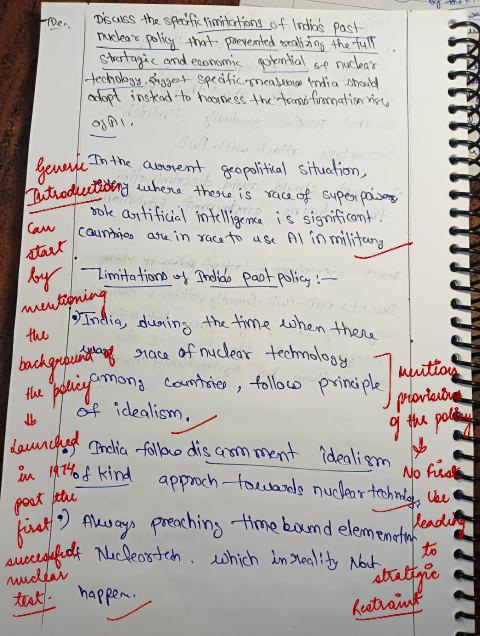 Discuss the specific limitations of India's past
nuclear policy that prevented realizing the full
startagic and economic potential of nuclear
techology, suggest specific measures India should
adopt instead to harness the transformation
of AI.
Generic
Introduction
can
start
by
mentioning
the
background of
the policy
↓
Launched
in 1974
post the
first
successful
nuclear
test.
In the current geopolitical situation,
where there is race of superpower
role artificial intelligence is significant
countries are in race to use AI in military
Limitations of India's Past policy :-
•) India, during the time when there
race of nuclear technology
among countries, follow principle
of idealism.
•) India follow disarmment idealism
of kind approch towards nuclear
•) Always preaching time bound
of Nuclear tech. which in reality Not
happen.
mention
provisions
of the policy
↓
No First
Use
leading
to
strategic
Restraint